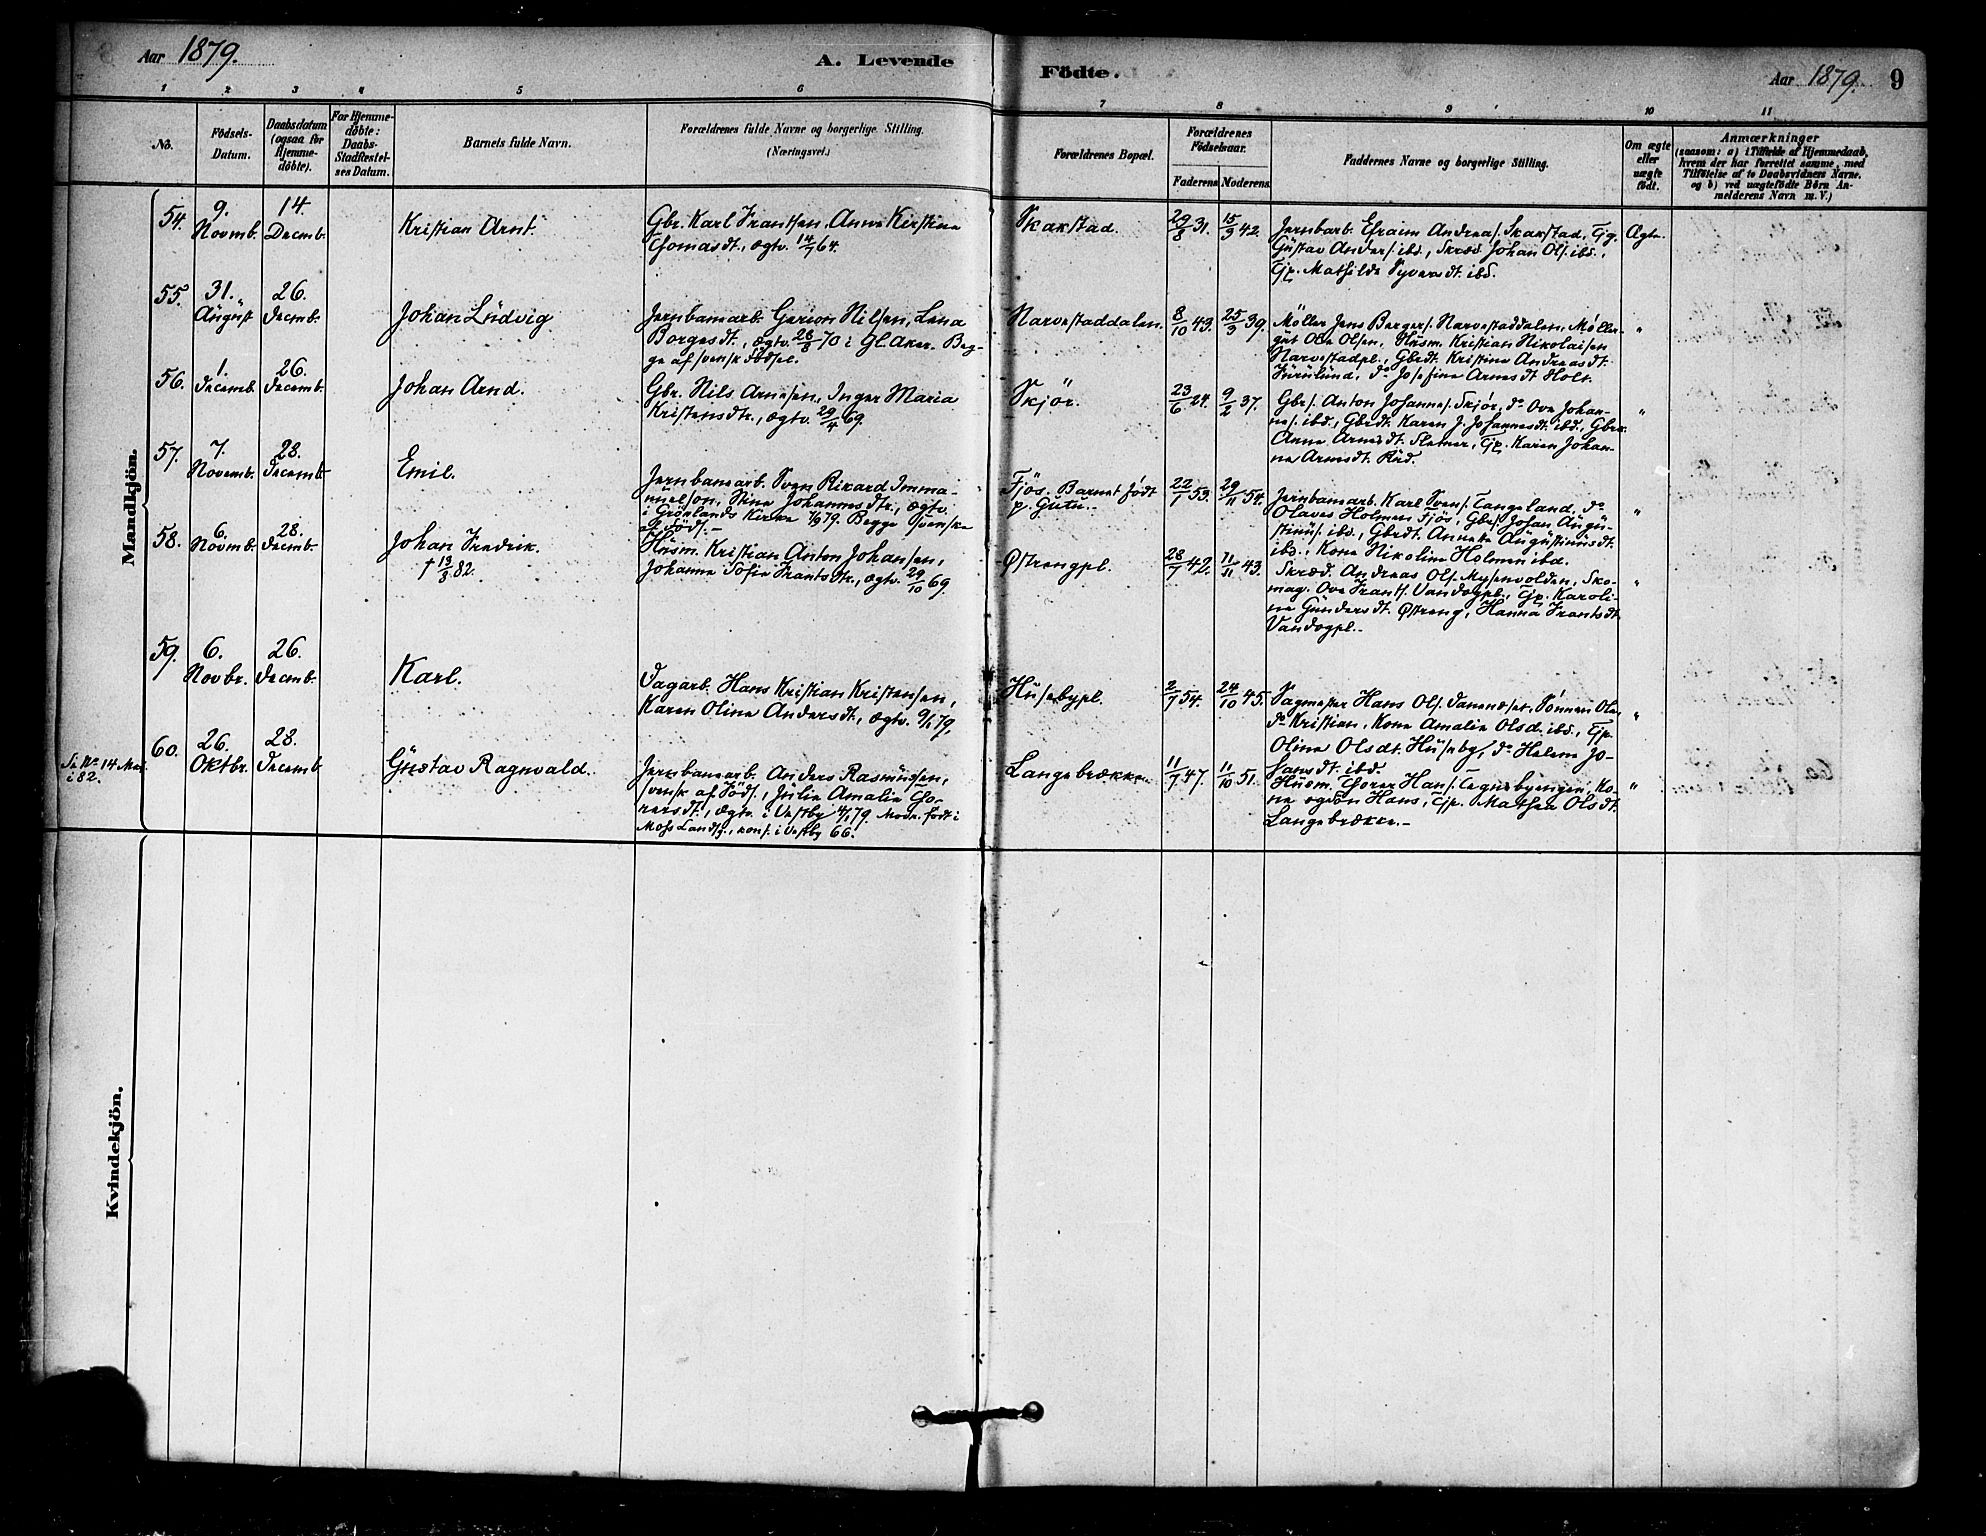 Aar 1879.
A. Levende
Födte.
Aar 1879.
9
1 2 3 4 5 6 7 8 9 10 11
No.
Födsels-
Datum.
Daabsdatum
(ogsaa for
Hjemme-
döbte).
For Hjemme-
döbte:
Daabs-
Stadfæstel-
ses Datum.
Barnets fulde Navn.
Forældrenes fulde Navne og borgerlige Stilling.
(Næringsvei.)
Forældrenes Bopæl.
Forældrenes
Födselsaar.
Faderens
Moderens
Faddernes Navne og borgerlige Stilling.
Om ægte
eller
uægte
födt.
Anmærkninger
(saasom: a) i Tilfælde af Hjemmedaab,
hvem der har forrettet samme, med
Tilföielse af to Daabsvidners Navne.
og b) ved uægtefödte Börn An-
melderens Navn m. V.)
Mandkjön.
54.
9.
Novmb.
14.
Decmb.
Kristian Arnt.
Gbr. Karl Frantsen, Anne Kirstine
Thomasdt., ægtv. 14/7 64.
Skakstad.
29/8 31.
15/3 42.
Jernbarb. Efraim Andreas. Skakstad, Tjg.
Gustav Anders. ibd., Skræd. Johan Ols. ibd.,
Tjp. Mathilde Syversdt. ibd.
Ægte.
55.
31.
August
26.
Decmb.
Johan Ludvig
Jernbanearb. Gerion Nilsen, Lena
Borgesdt., ægtv. 26/8 70 i Gl. Aker. Beg-
ge af svensk Födsel.
Narvestaddalen.
8/10 43.
25/3 39.
Møller Jens Bergers. Narvestaddalen, Møller-
gut Ole Olsen, Husm. Kristian Nikolaisen
Narvestadpl., Gbrdt. Kristine Andreasdt.
Furulund, do Josefine Arnesdt. Holt.
"
56.
1.
Decemb.
26.
Decemb.
Johan Arnd.
Gbr. Nils Arnesen, Inger Maria
Kristensdtr., ægtv. 29/4 69.
Skjör.
23/6 24.
9/2 37.
Gbrs. Anton Johannes. Skjör, do Ove Johan-
nes. ibd., Gbrdt. Karen J. Johannesdt. ibd., Gbrk.
Anne Arnesdt. Slemer, Tjp. Karen Johan-
ne Arnesdt. Rud.
"
57.
7.
Novemb.
28.
Decemb.
Emil.
Jernbanearb. Sven Rikard Imma-
nuelson, Stina Johannesdtr., ægtv.
i Grönlands Kirke 7/9 79. Begge svenske
af Föds.
Fjös. Barnet født
p. Gutu.
22/1 53.
29/11 54.
Jernbanearb. Karl Svens. Tangeland, do
Olaves Holmen Fjös, Gbrs. Johan Augu-
stinus. ibd., Gbrdt. Annette Augustinusdt.
ibd., Kone Nikoline Holmen ibd.
"
58.
6.
Novmb.
28.
Decmb.
Johan Fredrik.
† 13/3 82.
Husm. Kristian Anton Johansen,
Johanne Sofie Frantsdtr., ægtv. 29/10 69.
Østrengpl.
28/7 42.
11/11 43.
Skræd. Andreas Ols. Mysenvolden, Sko-
mag. Ove Frants. Vandogpl., Tjp. Karoli-
ne Gundersdt. Østreng, Hanna Frantsdt.
Vandogpl.
"
59.
6.
Novbr.
26.
Decmb.
Karl.
Dagarb. Hans Kristian Kristensen,
Karen Oline Andersdt., ægtv. 9/1 79,
Husebypl.
2/7 54.
24/10 45.
Sagmester Hans Ols. Vanenæset, Sønnen Ole,
do Kristian, Kone Amalie Olsd. ibd., Tjp.
Oline Olsdt. Huseby, do Helene Jo-
hansdt. ibd.
"
Se No 14 Mai
i 82.
60.
26.
Oktbr.
28.
Decemb.
Gustav Ragnvald.
Jernbanearb. Anders Rasmusen,
svensk af Föds., Julie Amalie Tho-
resdt., ægtv. i Vestby 4/1 79. Modr. født i
Moss Landss., konf. i Vestby 66.
Langebrække.
11/7 47.
11/10 51.
Husm. Thorer Hans. Tegnebyengen, Ko-
ne og Søn Hans, Tjp. Mathea Olsdt.
Langebrække.
"
Kvindekjön.